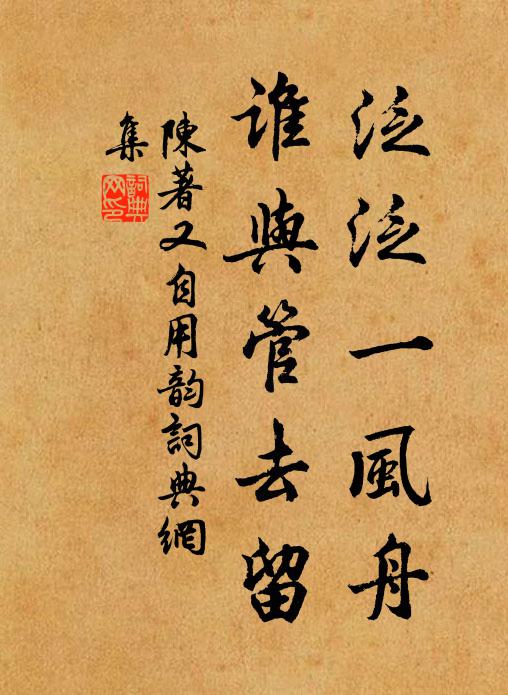 泛泛一風舟
誰與管去留
陳著又自用韵詞典網
集
詞典
网印